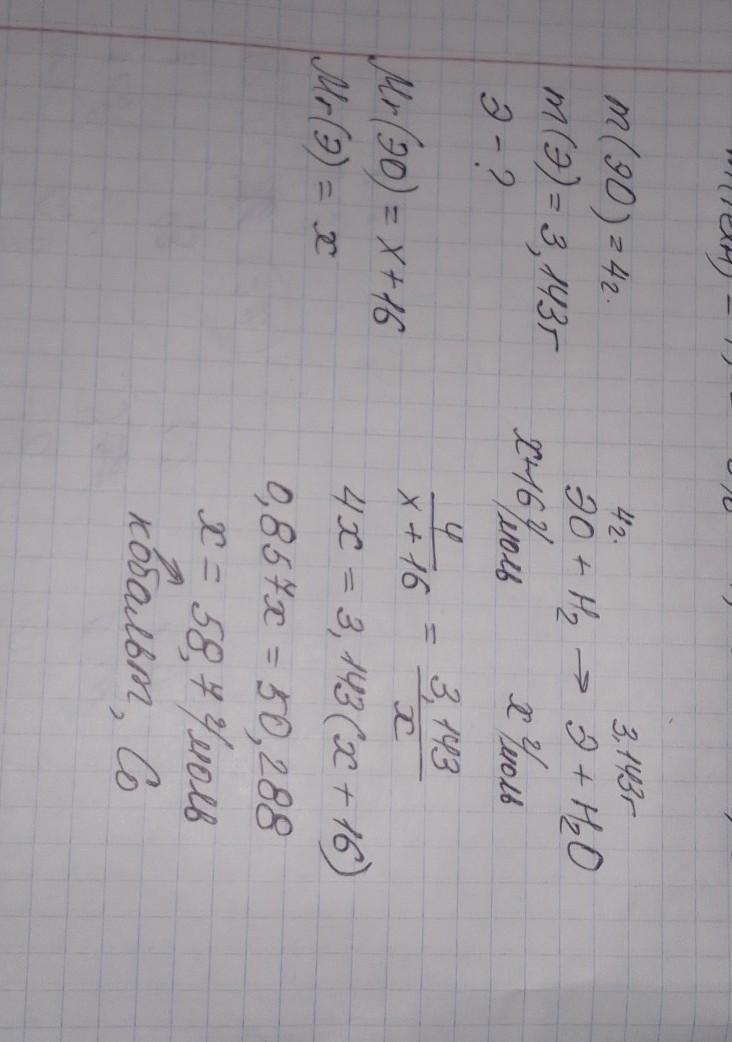 m(ЭО) = 4г.
m(Э) = 3,143г
Э - ?
Mr(ЭО) = x + 16
Mr(Э) = x
4г. 3,143г
ЭО + H₂ → Э + H₂O
x+16 г/моль x г/моль
4/(x + 16) = 3,143/x
4x = 3,143(x + 16)
0,857x = 50,288
x = 58,7 г/моль
кобальт, Co